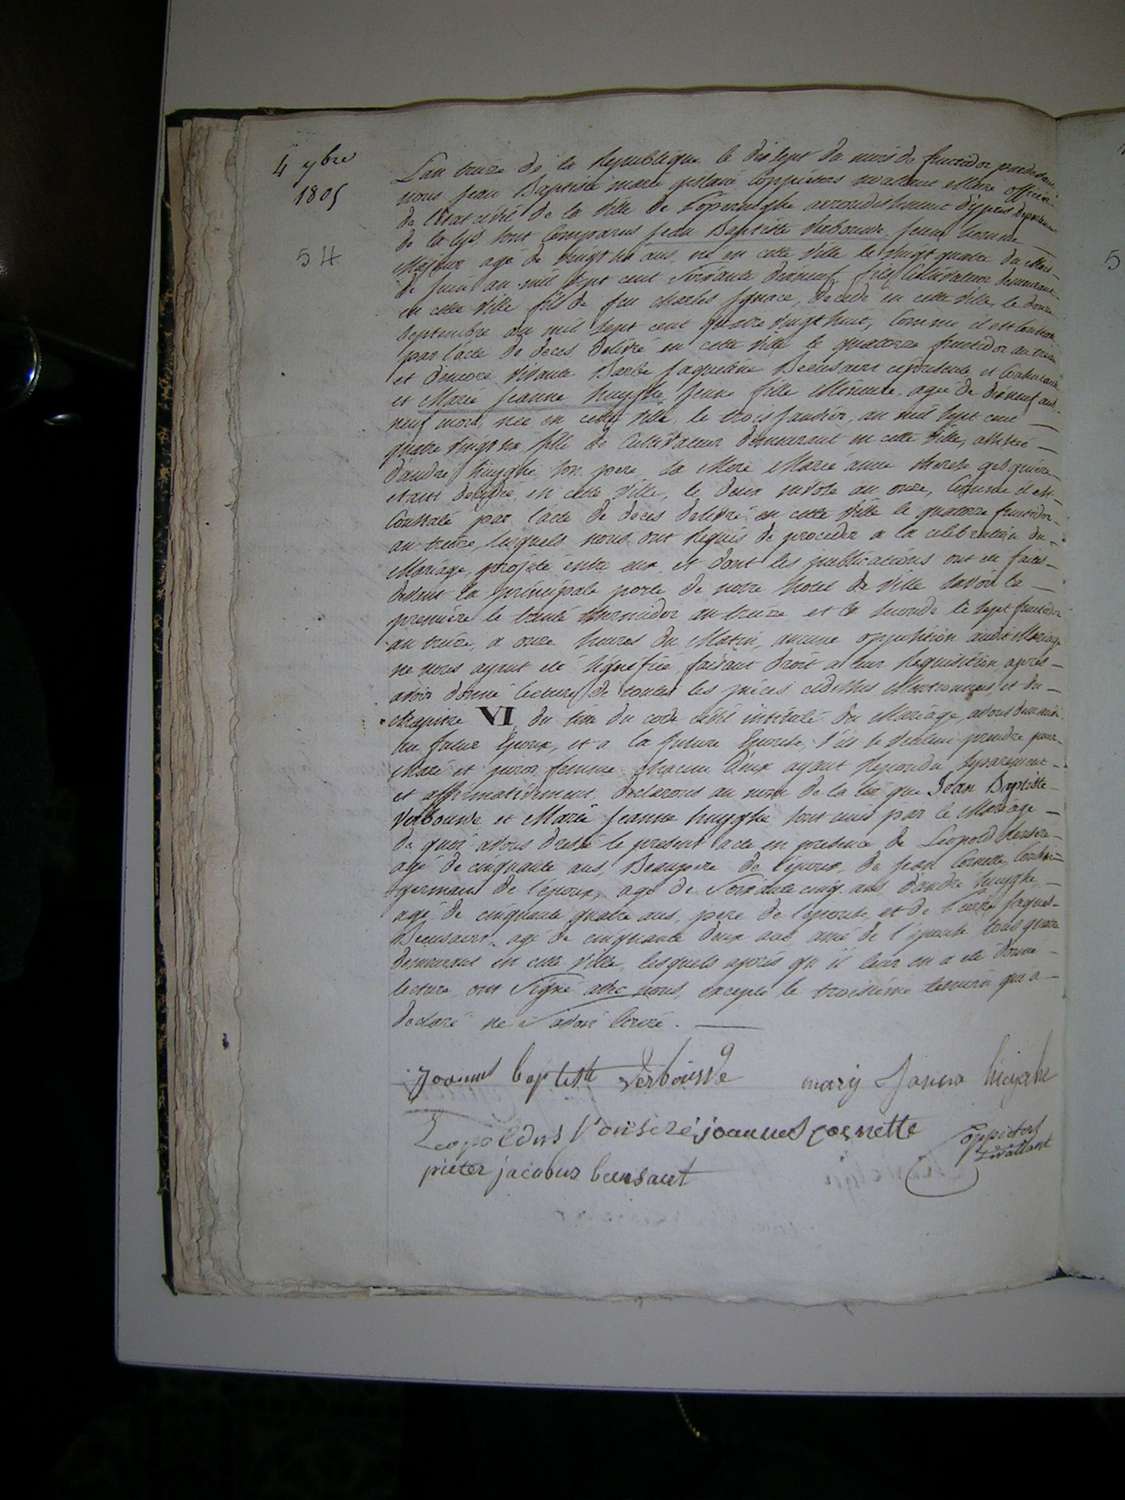 4 ybre
1805
54
L'an treize de la Republique le dixsept du mois de fructidor pardevant
nous Jean Baptiste marie coppieters maire officier
de l'état civil de la ville de Poperinghe arrondissement d'ypres departement
de la Lys sont Comparus Jean Baptiste Verbouwe jeune homme
Majeur age de vingt six ans, né en cette ville le vingt quatre du Mois
de juin an mil sept cent soixante dixneuf cultivateur demeurant
en cette ville fils de feu Charles Ignace, decedé en cette ville, le douze
septembre an mil sept cent quatre vingt huit, Comme il est constaté
par l'acte de deces delivré en cette ville le quatorze fructidor an treize
et d'encore vivante Barbe Jaqueline Beensaert et Consentante
et Marie Jeanne huyghe jeune fille Mineure, agée de dixneuf ans
neuf mois, née en cette ville le trois janvier, an mil sept cent
quatre vingt six fille de Cultivateur demeurant en cette ville,
d'andre huyghe son pere la Mere Marie anne
delivré en cette ville, le deux nivose an onze, Comme il est
Constaté par l'acte de deces delivré en cette ville le quatorze fructidor
an treize, lesquels nous ont Requis de proceder a la celebration du
Mariage projeté entre eux et dont les publications ont été faites
devant la principale porte de notre hotel de ville savoir la
premiere le trente thermidor an treize et la seconde le sept fructidor
an treize, a onze heures du Matin, aucune opposition audit Mariage
ne nous ayant été signifiée faisant droit a leur Requisition, après
avoir donné lecture de toutes les pièces cidessus Mentionnées, et du
chapitre VI du titre du code civil intitulé du Mariage, avons demandé
au futur Epoux, et a la future Epouse, s'ils se veulent prendre pour
Mari et pour femme chacun deux ayant repondu separement
et affirmativement declarons au nom de la loi que Jean Baptiste
Verbouwe et Marie Jeanne huyghe sont unis par le Mariage
de quoi avons dressé le present acte en presence de Leopold
agé de cinquante ans, Beaupere de l'époux, de Jean Cornette Cousin
germain de l'époux, agé de Soixante cinq ans d'andré huyghe
agé de cinquante quatre ans, pere de l'épouse et de Pierre Jaques
Beensaert agé de cinquante deux ans ami de l'épouse tous quatre
demeurant en cette ville, lesquels après qu'il leur en a été donné
lecture ont Signé avec nous, excepté le troisième temoin qui a
declaré ne savoir ecrire.
Joannes baptiste Verbouwe mary Joanna huyghe
Leopoldus joannes cornette Coppieters
pieter jacobus beensaert